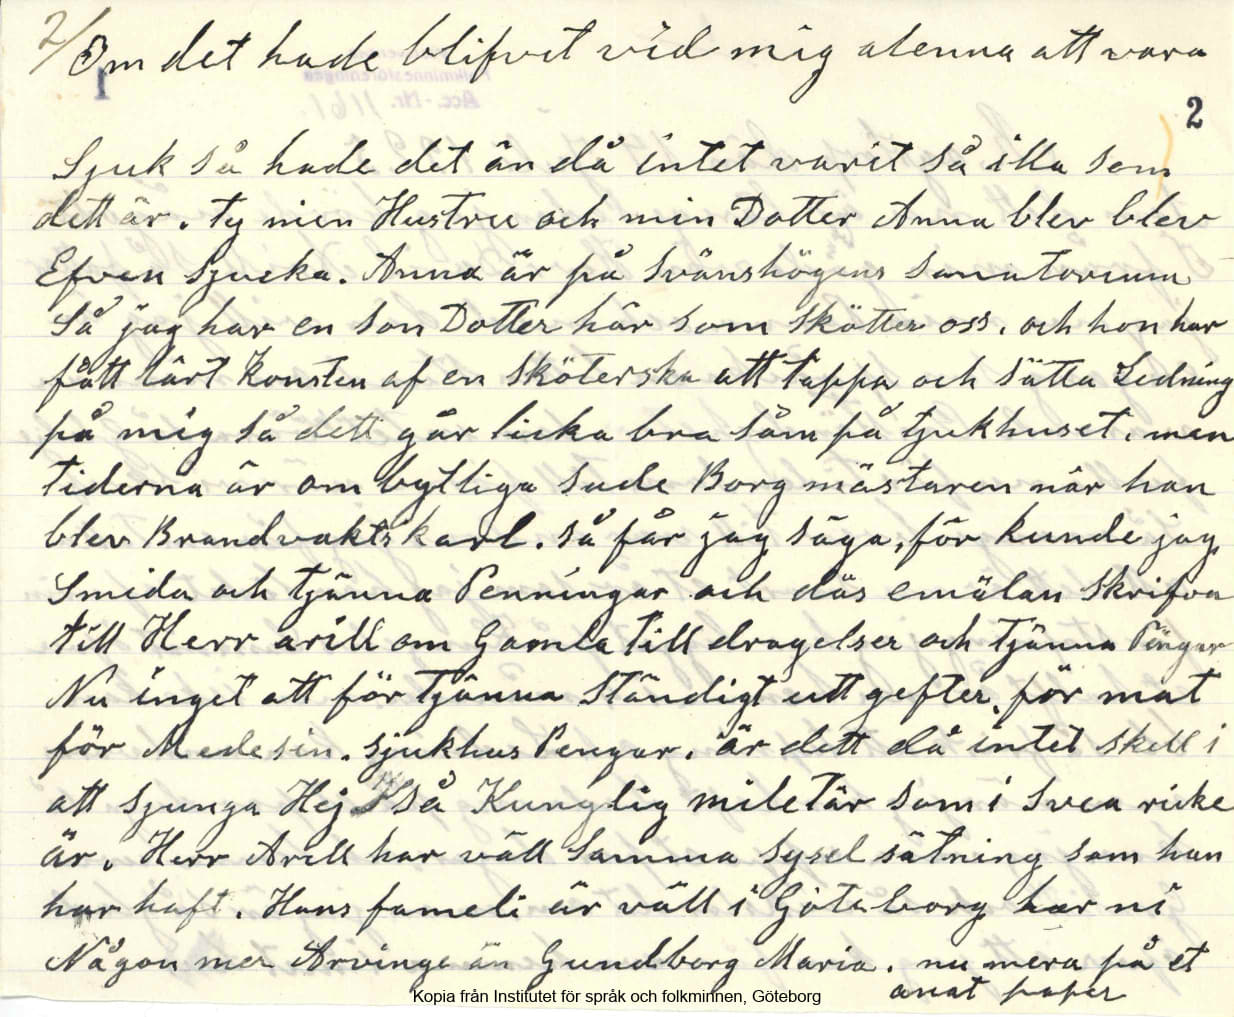 2/ Om det hade blifvit vid mig alenna att vara
1
2
Sjuk så hade det än då intet varit så illa som
dett är. ty min Hustru och min Dotter Anna blev blev
Efven sjucka. Anna är på Svänshögens Sanatorium
Så jag har en son Dotter här som skötter oss. och hon har
fått lärt konsten af en sköterska att tappa och sätta Ledning
på mig så dett går licka bra såm på tjukhuset. men
tiderna är om bytliga sade Borgmästaren när han
blev Brandvaktskarl. så får jag säga, för kunde jag
Smida och tjänna Penningar och däs emälan skrifva
till Herr arill om Gamla till dragelser och tjänna Pengar
Nu inget att för tjänna Ständigt utt gefter för mat
för Medesin. sjukhus Pengar. är dett då intet skell i
att sjunga Hej så Kunglig miletär som i Svea ricke
är. Herr Arill har väll Samma syselsätning som han
har haft. Hans fameli är väll i Göteborg har ni
Någon mer Arvinge än Gundborg Maria. nu mera på et
anat paper
Kopia från Institutet för språk och folkminnen, Göteborg